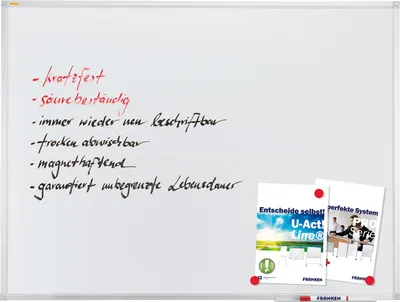 - kratzfest
- säurebeständig
- immer wieder neu beschriftbar
- trocken abwischbar
- magnethaftend
- garantiert unbegrenzte Lebensdauer
Entscheide selbst!
U-Act!
Line®
perfekte System
PRO
Serie
FRANKEN
FRANKEN